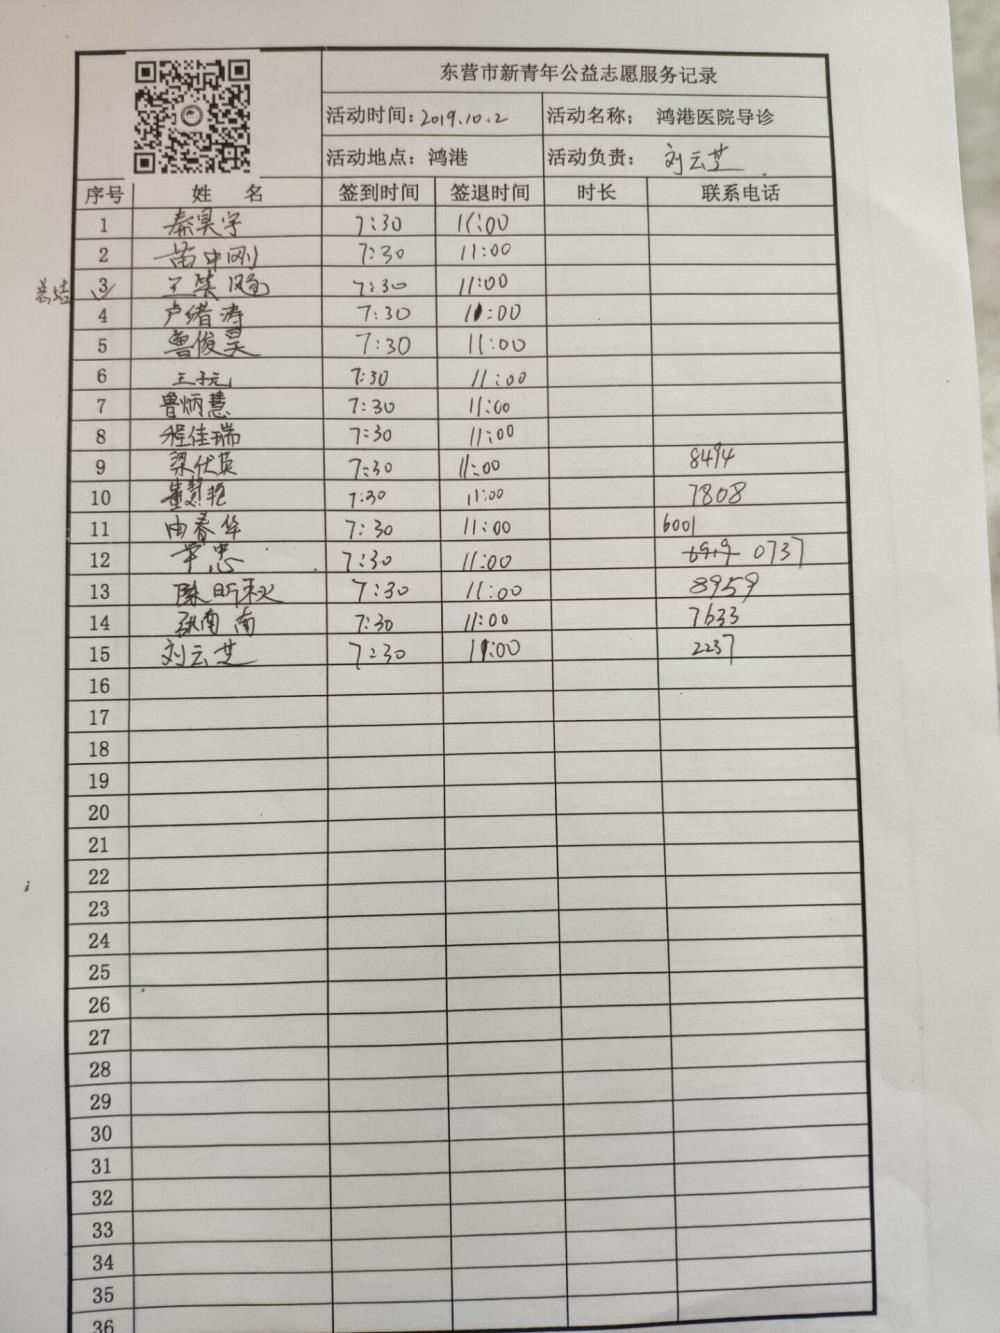 东营市新青年公益志愿服务记录
活动时间：2019.10.2 活动名称； 鸿港医院导诊
活动地点：鸿港 活动负责： 刘云芝
序号 姓 名 签到时间 签退时间 时长 联系电话
1 秦昊宇 7:30 11:00
2 苗中刚 7:30 11:00
总结 3 王笑 7:30 11:00
4 卢绪涛 7:30 11:00
5 鲁俊昊 7:30 11:00
6 王子元 7:30 11:00
7 鲁炳慧 7:30 11:00
8 程佳瑞 7:30 11:00
9 梁伏英 7:30 11:00 8494
10 董慧艳 7:30 11:00 7808
11 由春华 7:30 11:00 6001
12 辛忠 7:30 11:00 0737
13 陈昕秋 7:30 11:00 8959
14 张南南 7:30 11:00 7633
15 刘云芝 7:30 11:00 2237
16
17
18
19
20
21
22
23
24
25
26
27
28
29
30
31
32
33
34
35
36